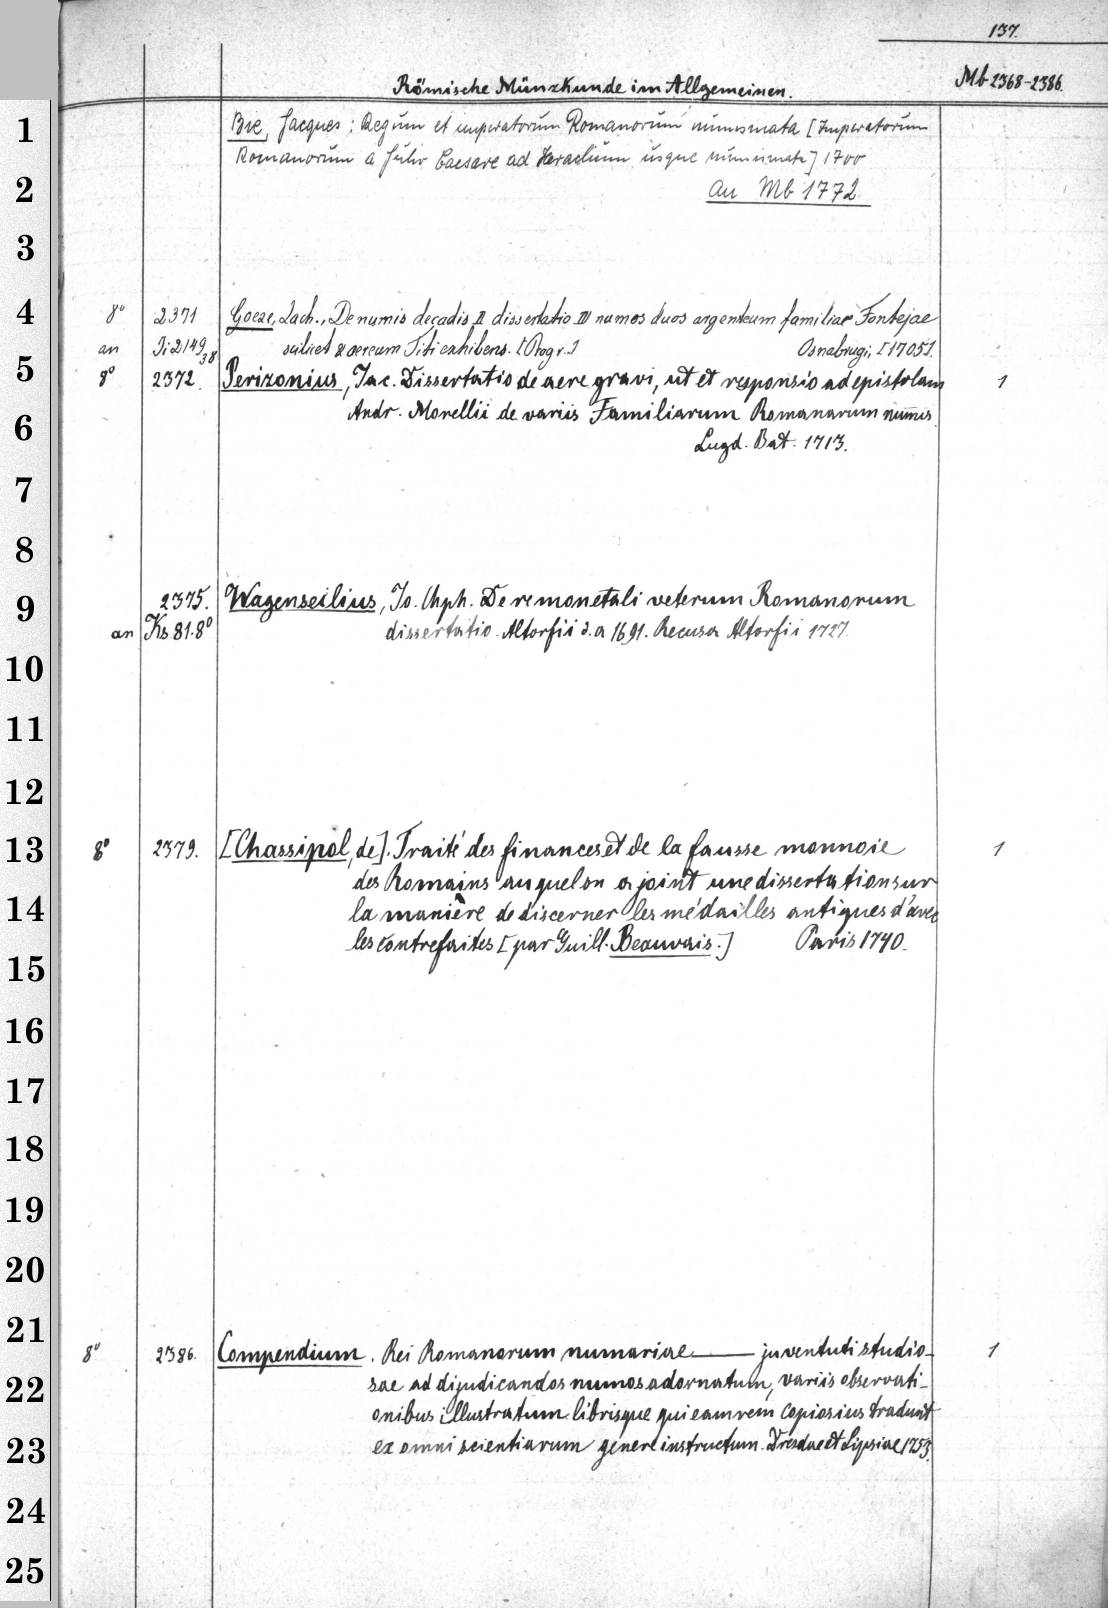 137.
Römische Münzkunde im Allgemeinen. Mb 2368-2386.
1 Bie, Jacques; Regum et imperatorum Romanorum numismata [Imperatorum
Romanorum a Julio Caesare ad Heraclium usque numismata] 1700
2 an Mb 1772.
3
4 8° 2371 Goeze, Zach., De numis decadis II dissertatio IV numos duos argenteum familiae Fontejae
an Ji 2149,38 scilicet & aereum Titi exhibens. [Progr.] Osnabrugi, [1705].
5 8° 2372. Perizonius, Jac. Dissertatio de aere gravi, ut et responsio ad epistolam 1
6 Andr. Morellii de variis Familiarum Romanarum numis.
Lugd. Bat. 1713.
7
8
9 2375. Wagenseilius, Jo. Chph. De re monetali veterum Romanorum
an Ks. 81. 8° dissertatio. Altorfii d. a 1691. Recusa Altorfii 1727.
10
11
12
13 8° 2379. [Chassipol, de]. Traité des finances et de la fausse monnoie 1
des Romains auquel on a joint une dissertation sur
14 la manière de discerner les médailles antiques d'avec
les contrefaites [par Guill. Beauvais.] Paris 1740.
15
16
17
18
19
20
21 8° 2386. Compendium. Rei Romanorum numariae ——— juventuti studio- 1
22 sae ad dijudicandos numos adornatum, variis observati-
onibus illustratum librisque qui eam rem copiosius tradunt
23 ex omni scientiarum genere instructum. Dresdae et Lipsiae 1753.
24
25